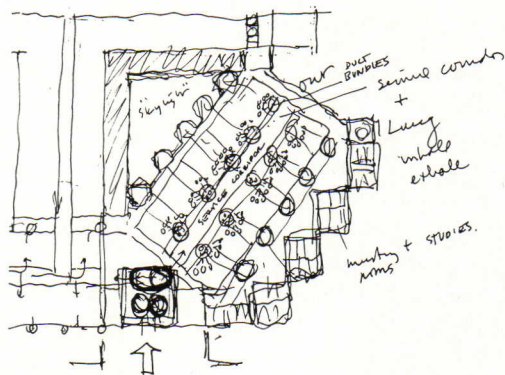 "skylight"
out
DUCT
BUNDLES
service corridor
+
Lung
inhale
exhale
SERVICE CORRIDOR
meeting + STUDIES.
rooms